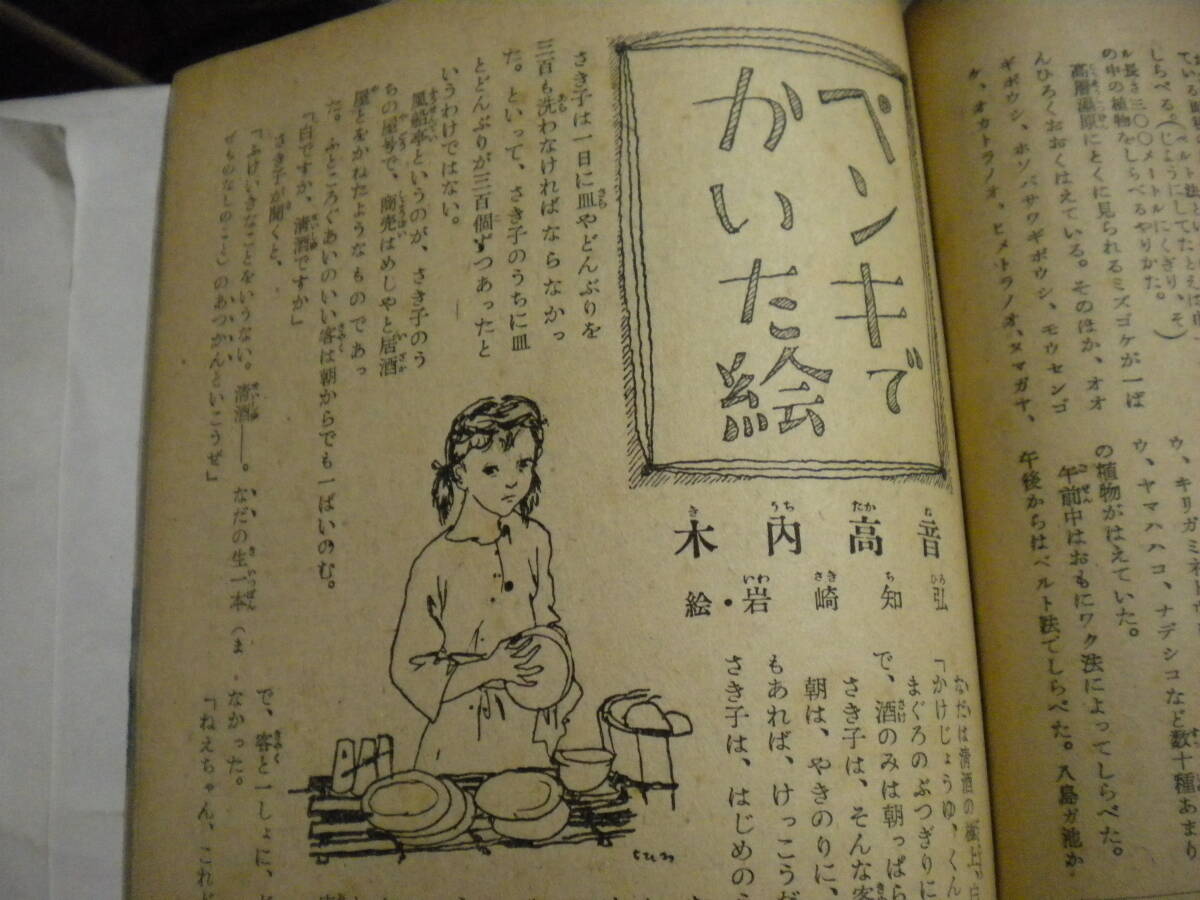 しらべる。(じょうにしてたとえば
ル長さ三〇〇メートルにくぎり、そ)
の中の植物をしらべるやりかた。
高層湿原にとくに見られるミズゴケが一ば
んひろくおおくはえている。そのほか、オオ
ギボウシ、ホソバサワギボウシ、モウセンゴ
ケ、オカトラノオ、ヒメトラノオ、ヌマガヤ、
ウ、ヤマハハコ、ナデシコなど数十種あまり
の植物がはえていた。
午前中はおもにワク法によってしらべた。
午後からはベルト法でしらべた。八島ガ池か
ペンキで
かいた絵
木内高音
き うち たか ね
絵・岩崎知弘
いわ さき ち ひろ
さき子は一日に皿やどんぶりを
三百も洗わなければならなかっ
た。といって、さき子のうちに皿
とどんぶりが三百個ずつあったと
いうわけではない。
風船亭というのが、さき子のう
ちの屋号で、商売はめしやと居酒
屋とをかねたようなものであっ
た。ふところぐあいのいい客は朝からでも一ぱいのむ。
「白ですか、清酒ですか」
さき子が聞くと、
「ふけいきなことをいうない。清酒――。なだの生一本(ま
ぜものなしのこと)のあつかんといこうぜ」
「かけじょうゆ、くん
まぐろのぶつぎりに
で、酒のみは朝っぱら
さき子は、そんな客
朝は、やきのりに、
もあれば、けっこうだ
さき子は、はじめのう
で、客と一しょに、
なかった。
「ねえちゃん、これ
ちひろ